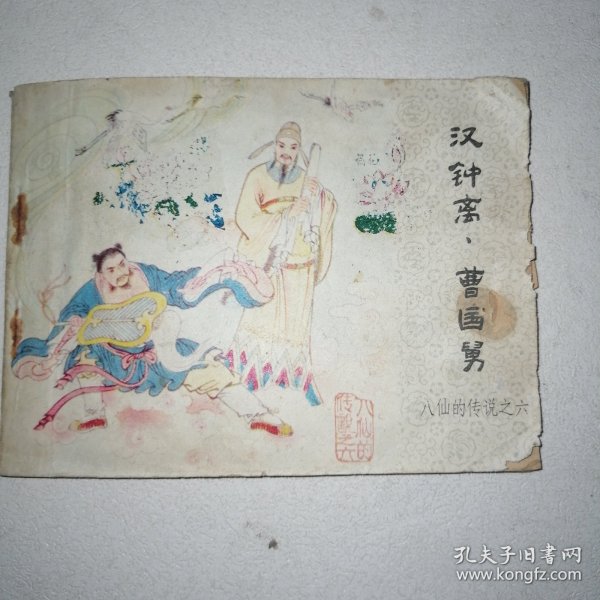 汉钟离、曹国舅
八仙的传说之六
八仙的
传说之六
孔夫子旧书网
www.kongfz.com